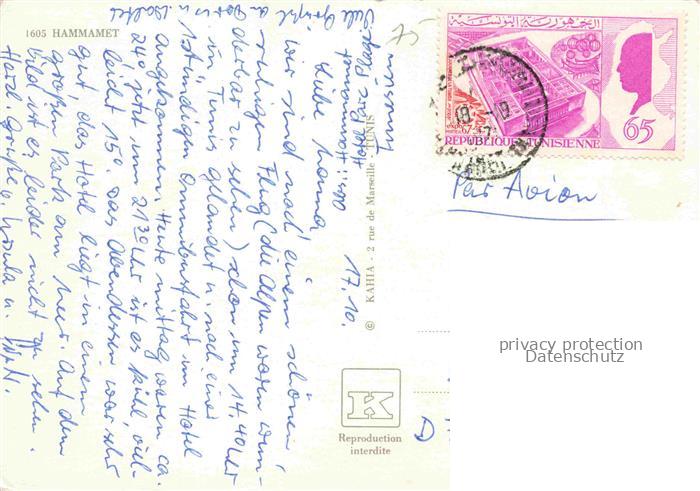 1605 HAMMAMET
Tunesien
Hotel Parc Plage
Hammamet 17.10.
Liebe Hanna
wir sind nach einem schönen
ruhigen Flug (die Alpen waren wun-
derbar zu sehen) schon um 14.40 Uhr
in Tunis gelandet u. nach einer
1stündigen Omnibusfahrt im Hotel
angekommen. Heute mittag waren ca.
24° jetzt um 21³⁰ Uhr ist es kühl, viel-
leicht 15°. Das Abendessen war sehr
gut, das Hotel liegt in einem
großen Park am Meer. Auf dem
Bild ist es leider nicht zu sehen.
Herzl. Grüße v. Ursula u.
Viele Grüße
© KAHIA - 2 rue de Marseille - TUNIS
K
Reproduction
interdite
75
الجمهورية التونسية
65
REPUBLIQUE TUNISIENNE
Par Avion
D
privacy protection
Datenschutz